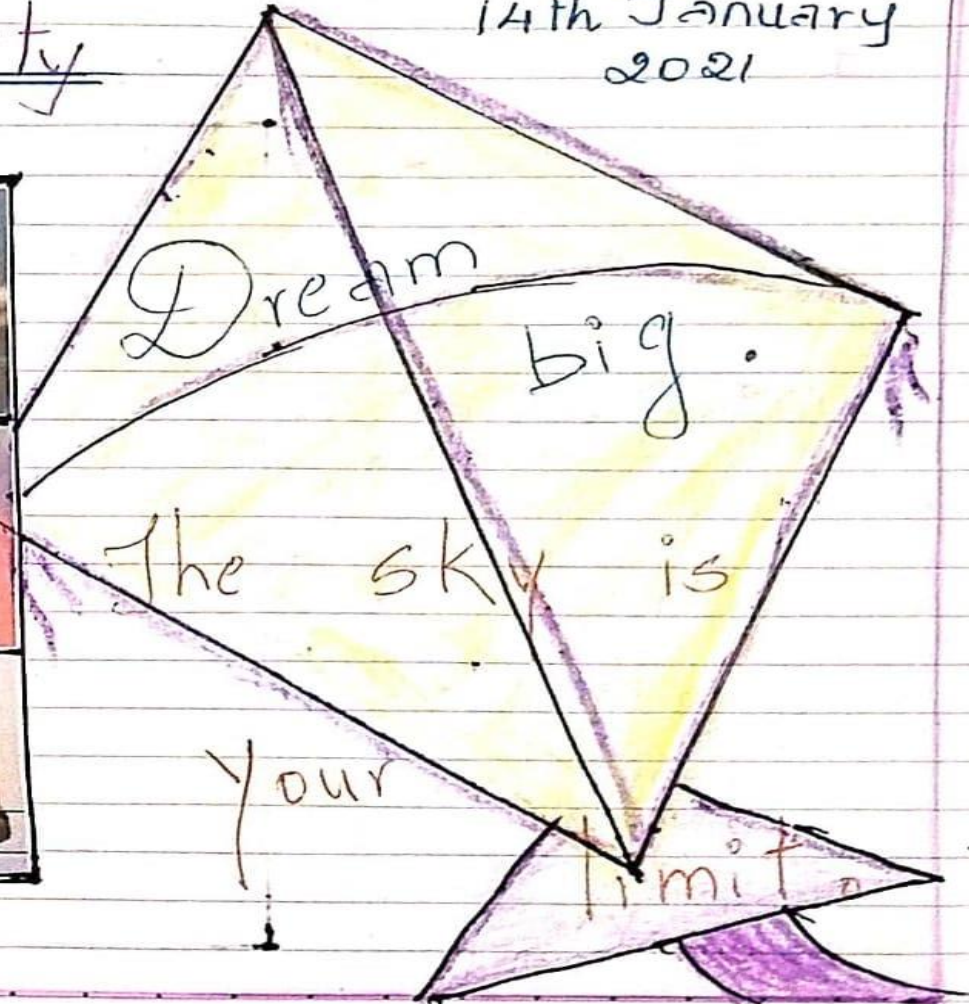 ty
14th January
2021
Dream
big.
The sky is
your
limit.